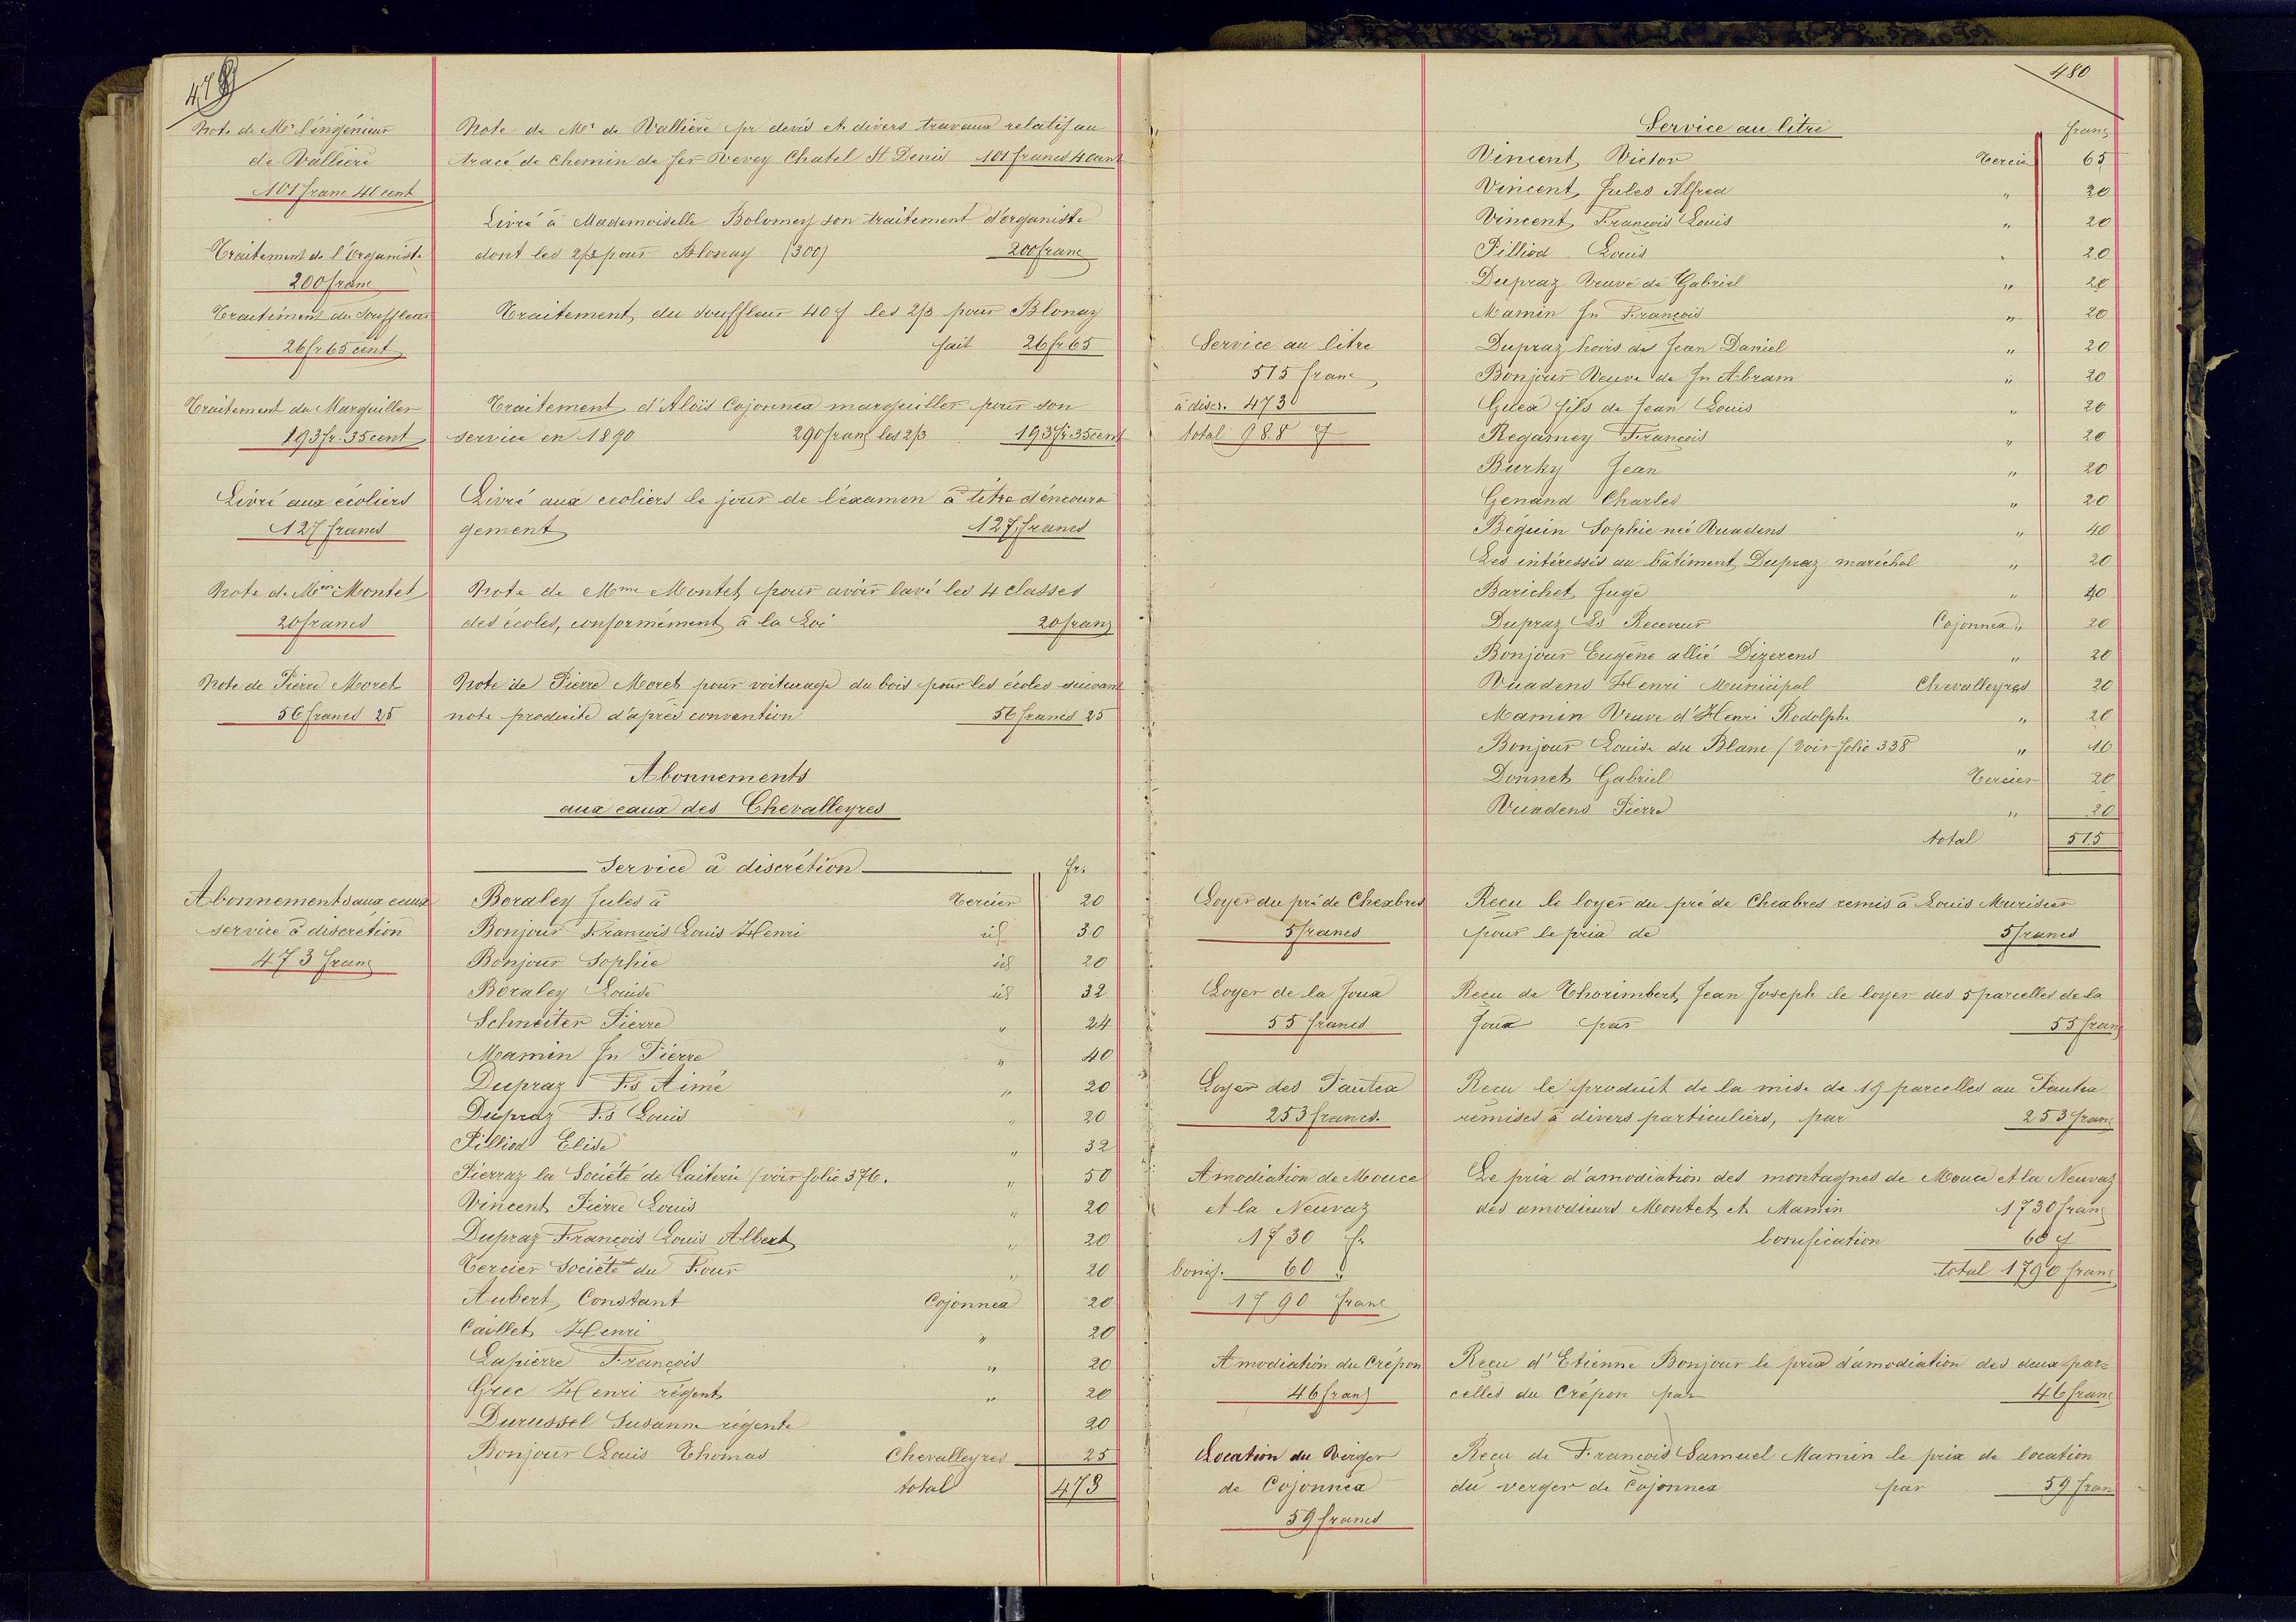 479
Note de Mr l'ingénieur
de Vallière
101 franc 40 cent
Traitement de l'Organiste
200 franc
Traitement du Souffleur
26 fr 65 cent
Traitement du Marguiller
193 fr. 35 cent
Livré aux écoliers
127 francs
Note de Mme Montet
20 francs
Note de Pierre Moret
56 francs 25
Abonnements aux eaux
service à discrétion
473 francs
Note de Mr de Vallière pr devis et divers travaux relatif au
tracé de chemin de fer Vevey Chatel St Denis 101 francs 40 cent
Livré à Mademoiselle Bolomey son traitement d'organiste
dont les 2/3 pour Blonay (300) 200 franc
Traitement du souffleur 40 f les 2/3 pour Blonay
fait 26 fr 65
Traitement d'Aloïs Cojonnex marguiller pour son
service en 1890 290 francs les 2/3 193 fr 35 cent
Livré aux écoliers le jour de l'examen à titre d'encoura
gement 127 francs
Note de Mme Montet pour avoir lavé les 4 classes
des écoles, conformément à la Loi 20 francs
Note de Pierre Moret pour voiturage du bois pour les écoles suivant
note produite d'après convention 56 francs 25
Abonnements
aux eaux des Chevalleyres
Service à discrétion fr.
Boraley Jules à Tercier 20
Bonjour François Louis Henri id 30
Bonjour Sophie id 20
Boraley Louise id 32
Schneiter Pierre " 24
Mamin Jn Pierre " 40
Dupraz Fs Aimé " 20
Dupraz Fs Louis " 20
Pilliod Elise " 32
Pierraz la Société de Laiterie (voir folio 376. " 50
Vincent Pierre Louis " 20
Dupraz François Louis Albert " 20
Tercier Société du Four " 20
Aubert Constant Cojonnex 20
Caillet Henri " 20
Lapierre François " 20
Grec Henri régent " 20
Durussel Susanne régente 20
Bonjour Louis Thomas Chevalleyres 25
total 473
480
Service au litre
515 franc
à discr. 473
total 988 f
Loyer du pré de Chexbres
5 francs
Loyer de la Joux
55 francs
Loyer des Pautex
253 francs.
Amodiation de Mouce
et la Neuvaz
1730 fr
bonif. 60 "
1790 franc
Amodiation du Crépon
46 francs
Location du Verger
de Cojonnex
59 francs
Service au litre
francs
Vincent Victor Tercier 65
Vincent Jules Alfred " 20
Vincent François Louis " 20
Pilliod Louis " 20
Dupraz Veuve de Gabriel " 20
Mamin Jn François " 20
Dupraz hoirs de Jean Daniel " 20
Bonjour Veuve de Jn Abram " 20
Gilex fils de Jean Louis " 20
Regamey François " 20
Burky Jean " 20
Genand Charles " 20
Béguin Sophie née Vuadens " 40
Les intéressés au bâtiment Dupraz maréchal " 20
Barichet Juge " 40
Dupraz Ls Receveur Cojonnex " 20
Bonjour Eugène allié Dizerens " 20
Vuadens Henri Municipal Chevalleyres 20
Mamin Veuve d'Henri Rodolphe " 20
Bonjour Louise du Blanc (voir folio 338 " 10
Donnet Gabriel Tercier 20
Vuadens Pierre " 20
total 515
Reçu le loyer du pré de Chexbres remis à Louis Murisier
pour le prix de 5 francs
Reçu de Thorimbert Jean Joseph le loyer des 5 parcelles de la
Joux par 55 francs
Reçu le produit de la mise de 19 parcelles au Pautex
remises à divers particuliers, par 253 franc
Le prix d'amodiation des montagnes de Mouce et la Neuvaz
des amodieurs Montet et Mamin 1730 francs
bonification 60 f
total 1790 franc
Reçu d'Etienne Bonjour le prix d'amodiation des deux par=
celles du Crépon par 46 franc
Reçu de François Samuel Mamin le prix de location
du verger de Cojonnex par 59 franc